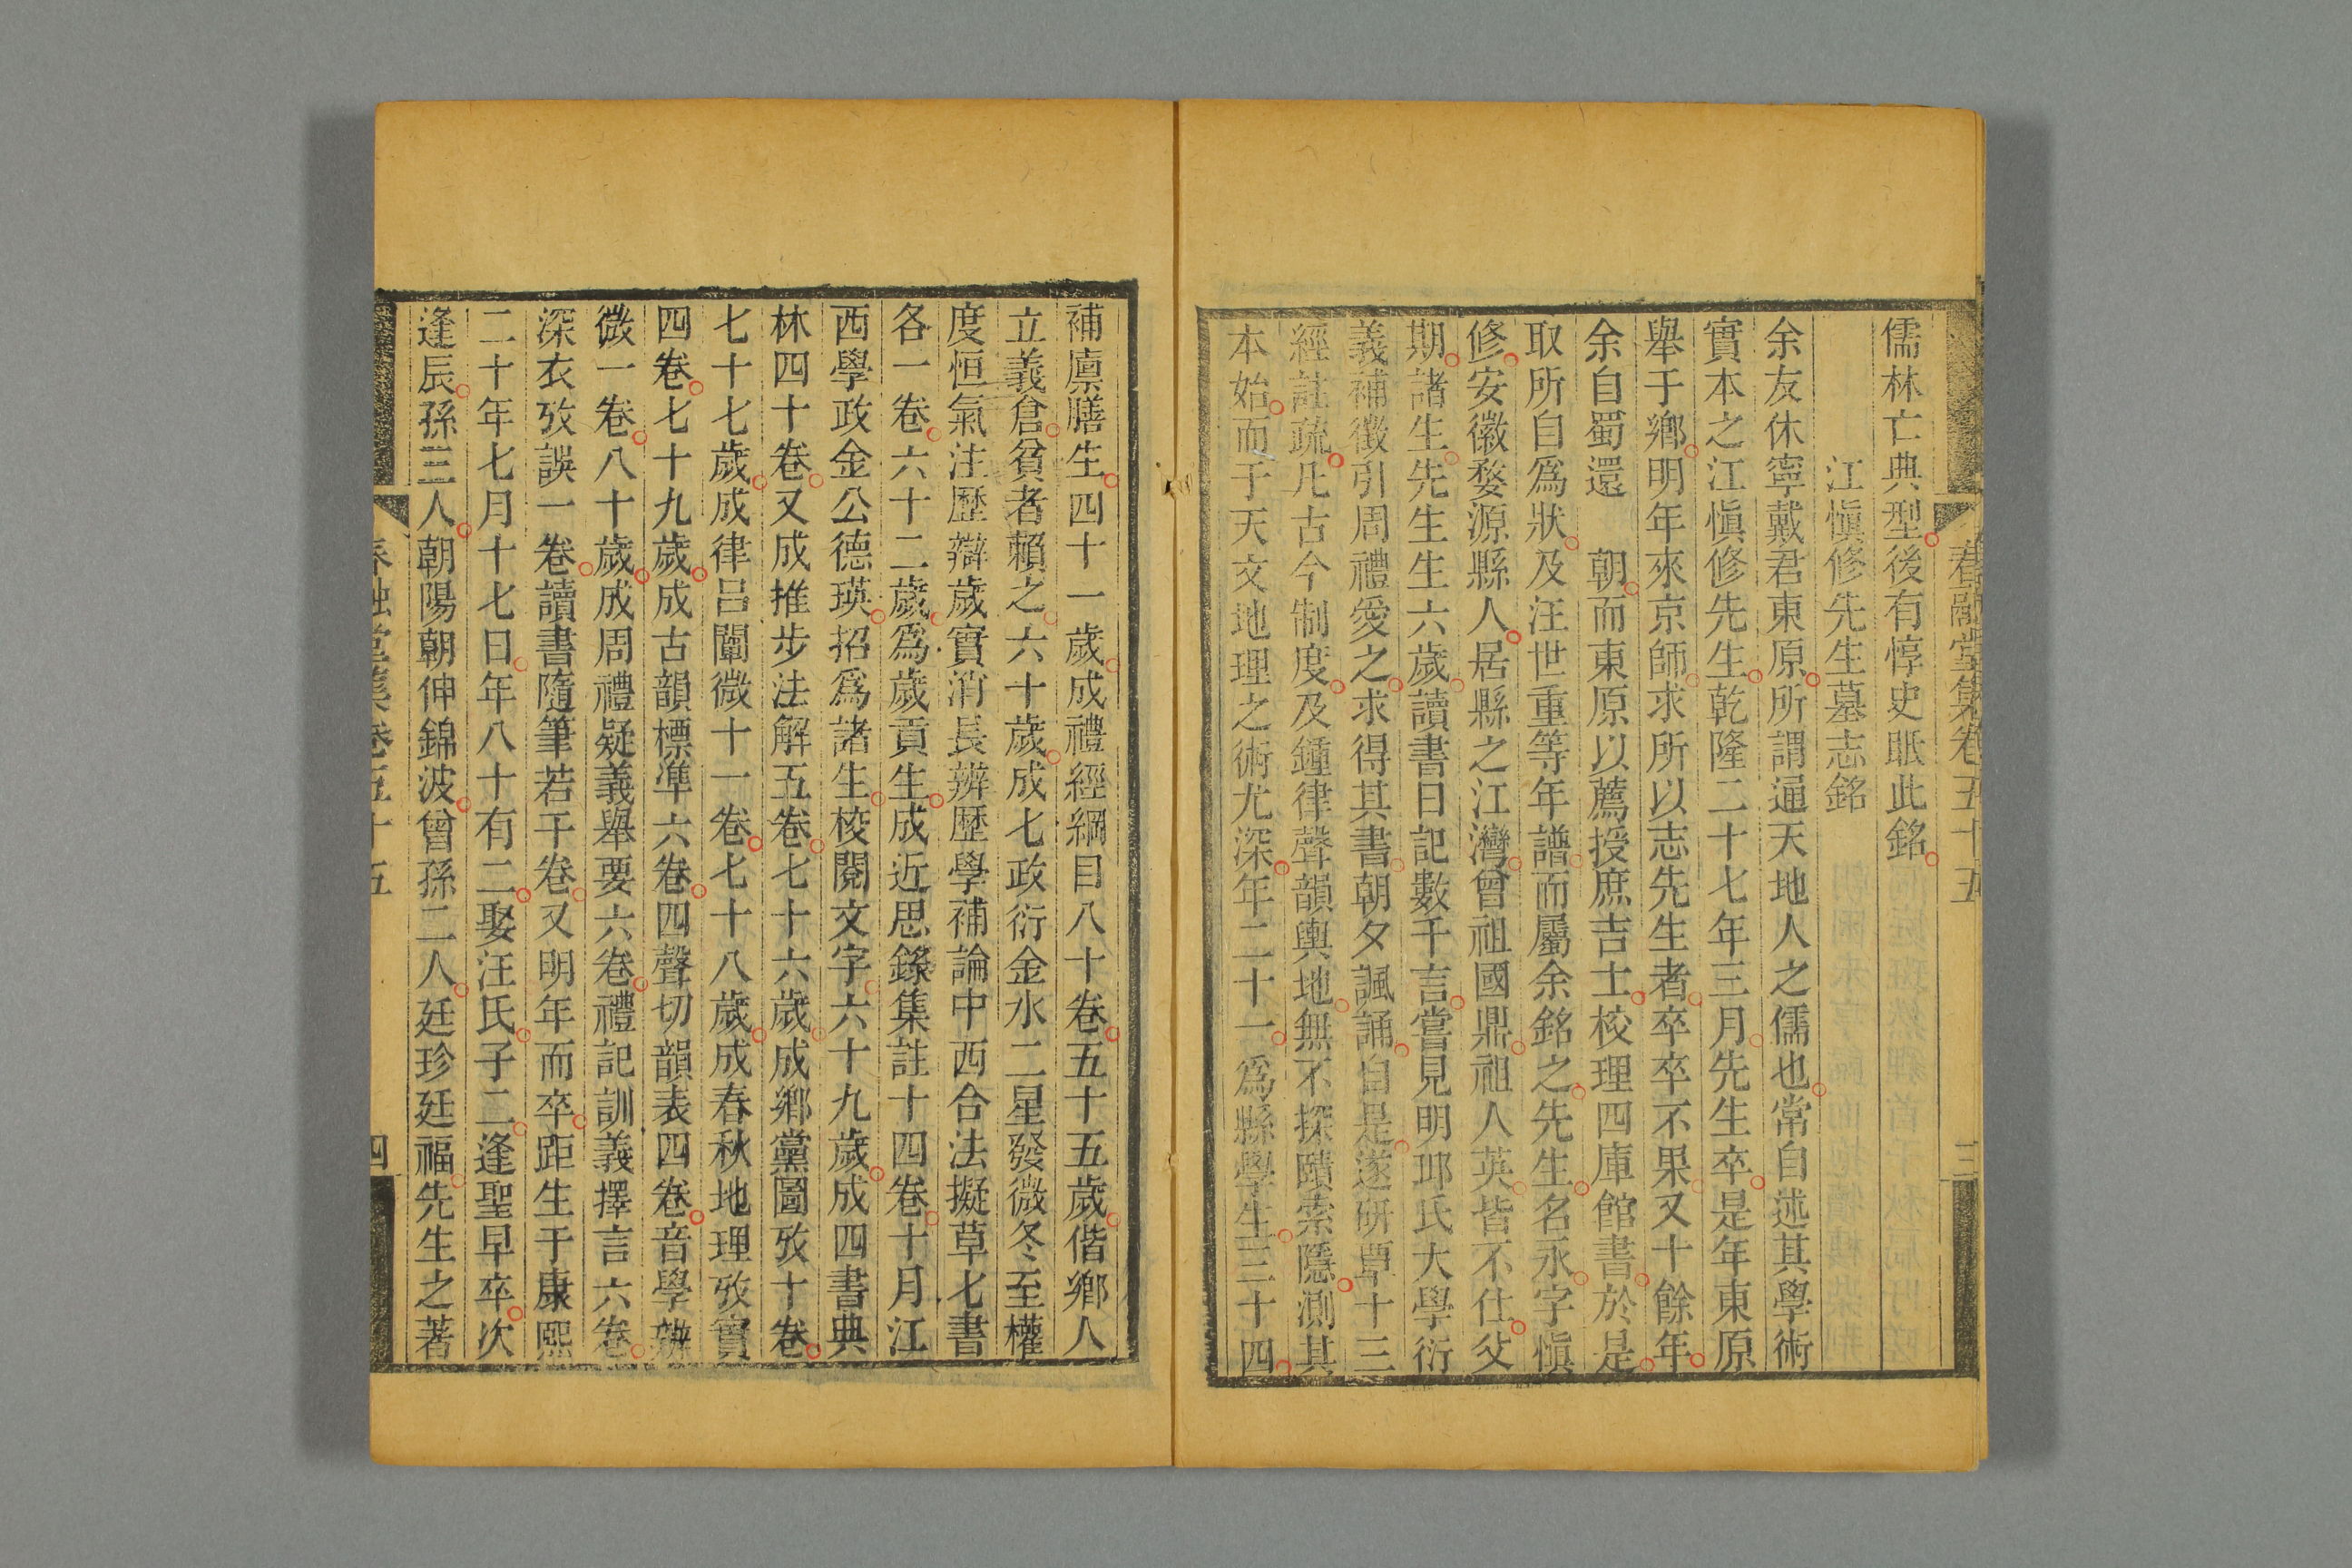 春融堂集卷五十五
三
儒林亡典型後有惇史眂此銘
江愼修先生墓志銘
余友休寧戴君東原所謂通天地人之儒也常自述其學術
實本之江愼修先生乾隆二十七年三月先生卒是年東原
舉于鄉明年來京師求所以志先生者卒卒不果又十餘年
余自蜀還朝而東原以薦授庶吉士校理四庫館書於是
取所自爲狀及汪世重等年譜而屬余銘之先生名永字愼
修安徽婺源縣人居縣之江灣曾祖國鼎祖人英皆不仕父
期諸生先生生六歲讀書日記數千言嘗見明邱氏大學衍
義補徵引周禮愛之求得其書朝夕諷誦自是遂研覃十三
經註疏凡古今制度及鍾律聲韻輿地無不探賾索隱測其
本始而于天文地理之術尤深年二十一爲縣學生三十四
補廩膳生四十一歲成禮經綱目八十卷五十五歲偕鄉人
立義倉貧者賴之六十歲成七政衍金水二星發微冬至權
度恒氣注歷辯歲實消長辨歷學補論中西合法擬草七書
各一卷六十二歲爲歲貢生成近思錄集註十四卷十月江
西學政金公德瑛招爲諸生校閱文字六十九歲成四書典
林四十卷又成推步法解五卷七十六歲成鄉黨圖攷十卷
七十七歲成律呂闡微十一卷七十八歲成春秋地理攷實
四卷七十九歲成古韻標準六卷四聲切韻表四卷音學辨
微一卷八十歲成周禮疑義舉要六卷禮記訓義擇言六卷
深衣攷誤一卷讀書隨筆若干卷又明年而卒距生于康熙
二十年七月十七日年八十有二娶汪氏子二逢聖早卒次
逢辰孫三人朝陽朝伸錦波曾孫二人廷珍廷福先生之著
春融堂集卷五十五
四